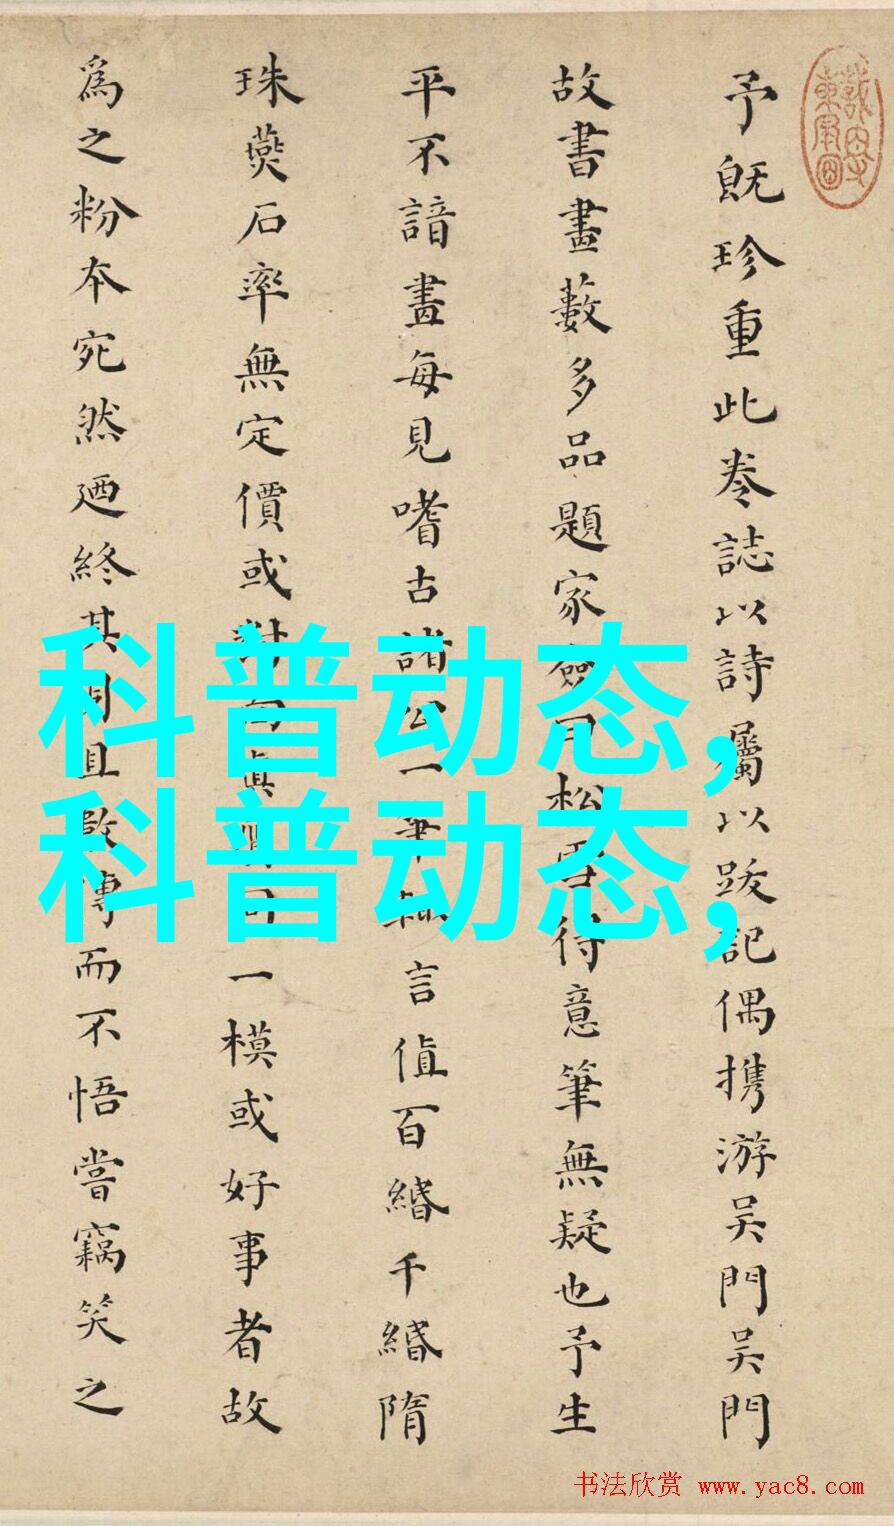 予旣珍重此卷誌以詩屬以跋記偶携游吴門吴門
故書畫藪多品題家僉曰松雪得意筆無疑也予生
平不諳畫每見嗜古諸公一筆輒言值百緡千緡隋
珠燕石率無定價或對真一模或好事者故
為之粉本宛然廼終其且傳而不悟嘗竊笑之
科普动态,
科普动态,
书法欣赏 www.yac8.com